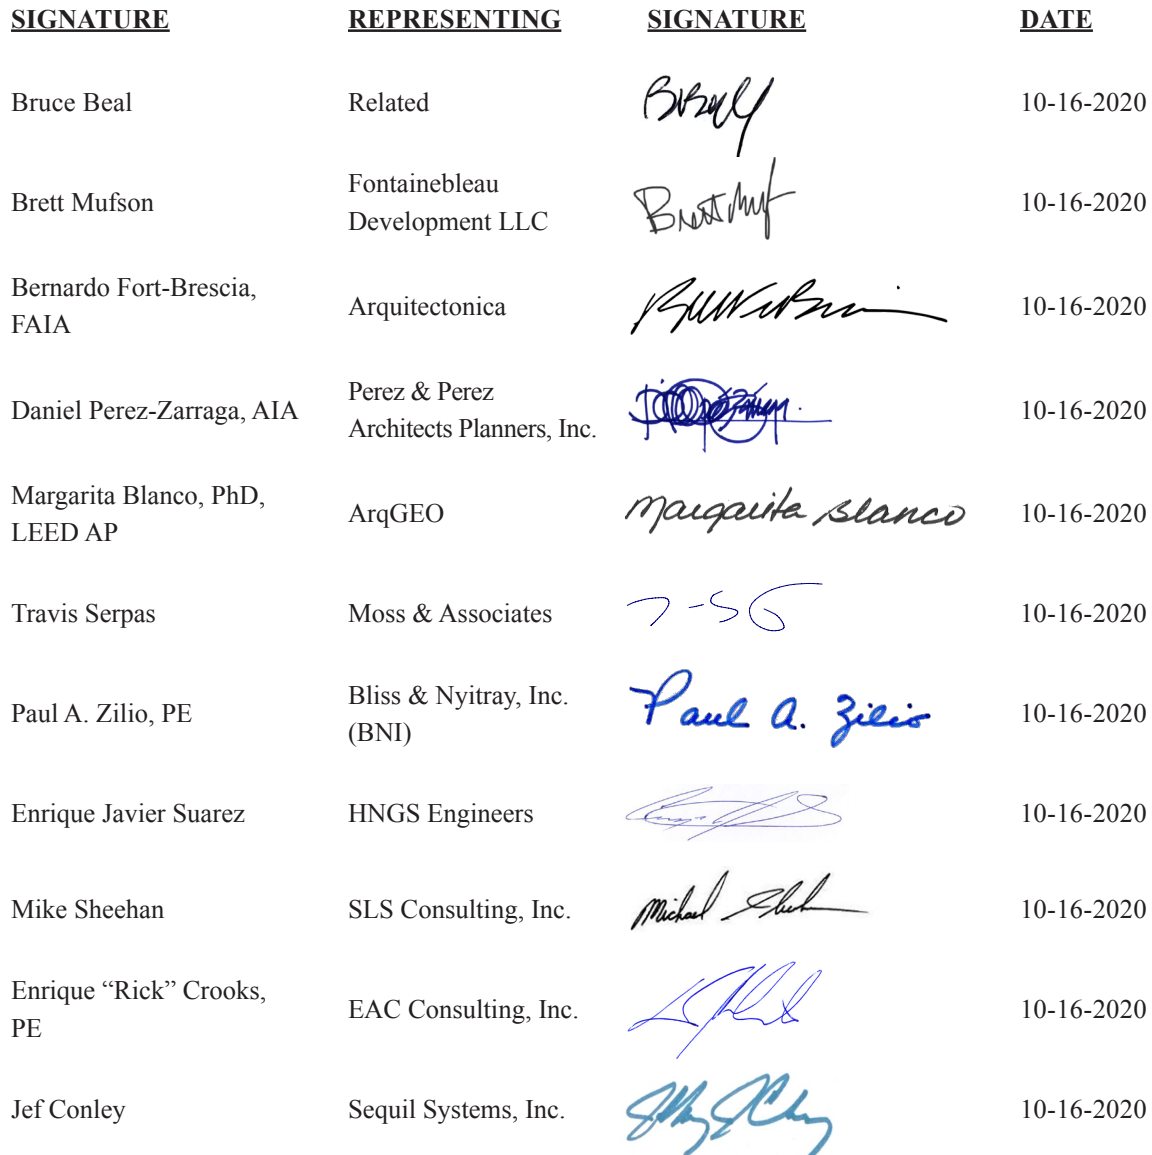 SIGNATURE REPRESENTING SIGNATURE DATE
Bruce Beal Related 10-16-2020
Brett Mufson Fontainebleau
Development LLC 10-16-2020
Bernardo Fort-Brescia,
FAIA Arquitectonica 10-16-2020
Daniel Perez-Zarraga, AIA Perez & Perez
Architects Planners, Inc. 10-16-2020
Margarita Blanco, PhD,
LEED AP ArqGEO Margarita Blanco 10-16-2020
Travis Serpas Moss & Associates 10-16-2020
Paul A. Zilio, PE Bliss & Nyitray, Inc.
(BNI) Paul A. Zilio 10-16-2020
Enrique Javier Suarez HNGS Engineers 10-16-2020
Mike Sheehan SLS Consulting, Inc. Michael 10-16-2020
Enrique “Rick” Crooks,
PE EAC Consulting, Inc. 10-16-2020
Jef Conley Sequil Systems, Inc. 10-16-2020